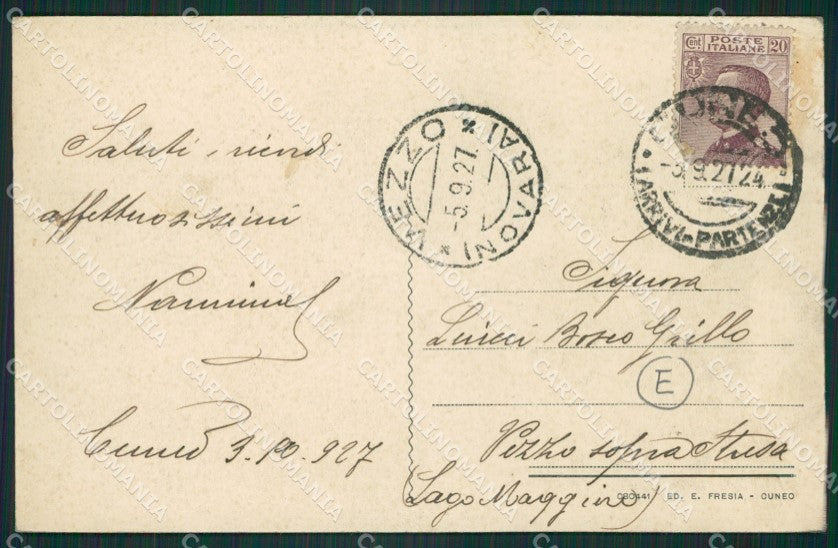 Saluti, ricordi
affettuosissimi
Cuneo 3.10.927
Cent
POSTE
ITALIANE
20
VEZZO
-5.9.27
-5.9.27 24
(ARRIVI-PARTENZE)
Signora
Bosco Grillo
E
Vezzo sopra Stresa
(Lago Maggiore)
080441 ED. E. FRESIA - CUNEO
CARTOLINOMANIA